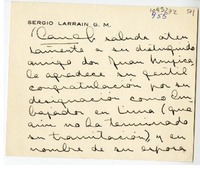 SERGIO LARRAIN, G. M.
saluda aten
tamente a su distinguido
amigo don Juan Mujica
le agradece su gentil
congratulación por su
designación como Em
bajador en Lima (que
aún no ha terminado
su tramitación) y en
nombre de su esposa